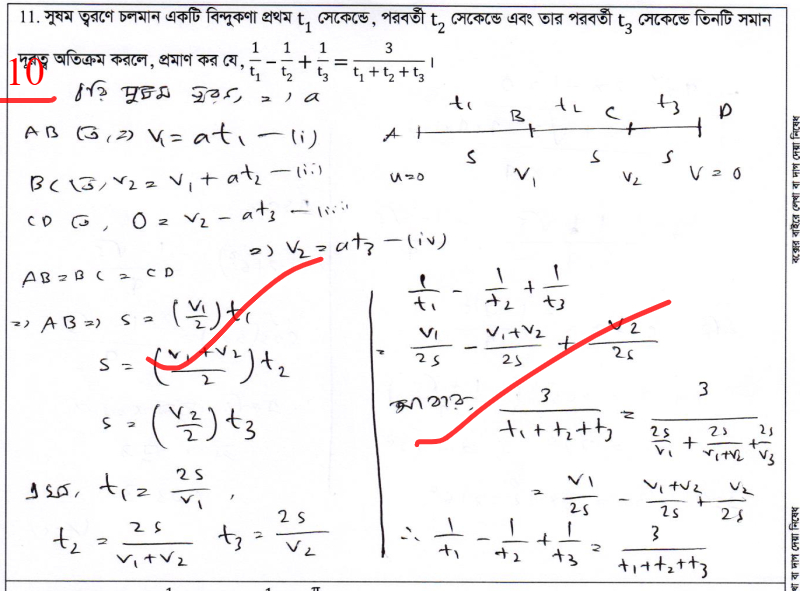 11. সুষম ত্বরণে চলমান একটি বিন্দুকণা প্রথম t₁ সেকেন্ডে, পরবর্তী t₂ সেকেন্ডে এবং তার পরবর্তী t₃ সেকেন্ডে তিনটি সমান
দূরত্ব অতিক্রম করলে, প্রমাণ কর যে, 1/t₁ - 1/t₂ + 1/t₃ = 3/(t₁ + t₂ + t₃)।
10
ধরি সুষম ত্বরণ, = a
AB তে, => v₁ = at₁ — (i)
BC তে, v₂ = v₁ + at₂ — (ii)
CD তে, 0 = v₂ - at₃ — (iii)
=> v₂ = at₃ — (iv)
AB = BC = CD
=> AB => s = (v₁/2) t₁
s = ((v₁ + v₂)/2) t₂
s = (v₂/2) t₃
এখন, t₁ = 2s/v₁,
t₂ = 2s/(v₁ + v₂) t₃ = 2s/v₂
t₁ t₂ t₃
A B C D
s s s
u = 0 v₁ v₂ V = 0
1/t₁ - 1/t₂ + 1/t₃
= v₁/2s - (v₁ + v₂)/2s + v₂/2s
আবার, 3/(t₁ + t₂ + t₃) = 3/(2s/v₁ + 2s/(v₁+v₂) + 2s/v₃)
= v₁/2s - (v₁ + v₂)/2s + v₂/2s
∴ 1/t₁ - 1/t₂ + 1/t₃ = 3/(t₁ + t₂ + t₃)
বক্সের বাইরে লেখা বা দাগ দেয়া নিষেধ
খা বা দাগ দেয়া নিষেধ